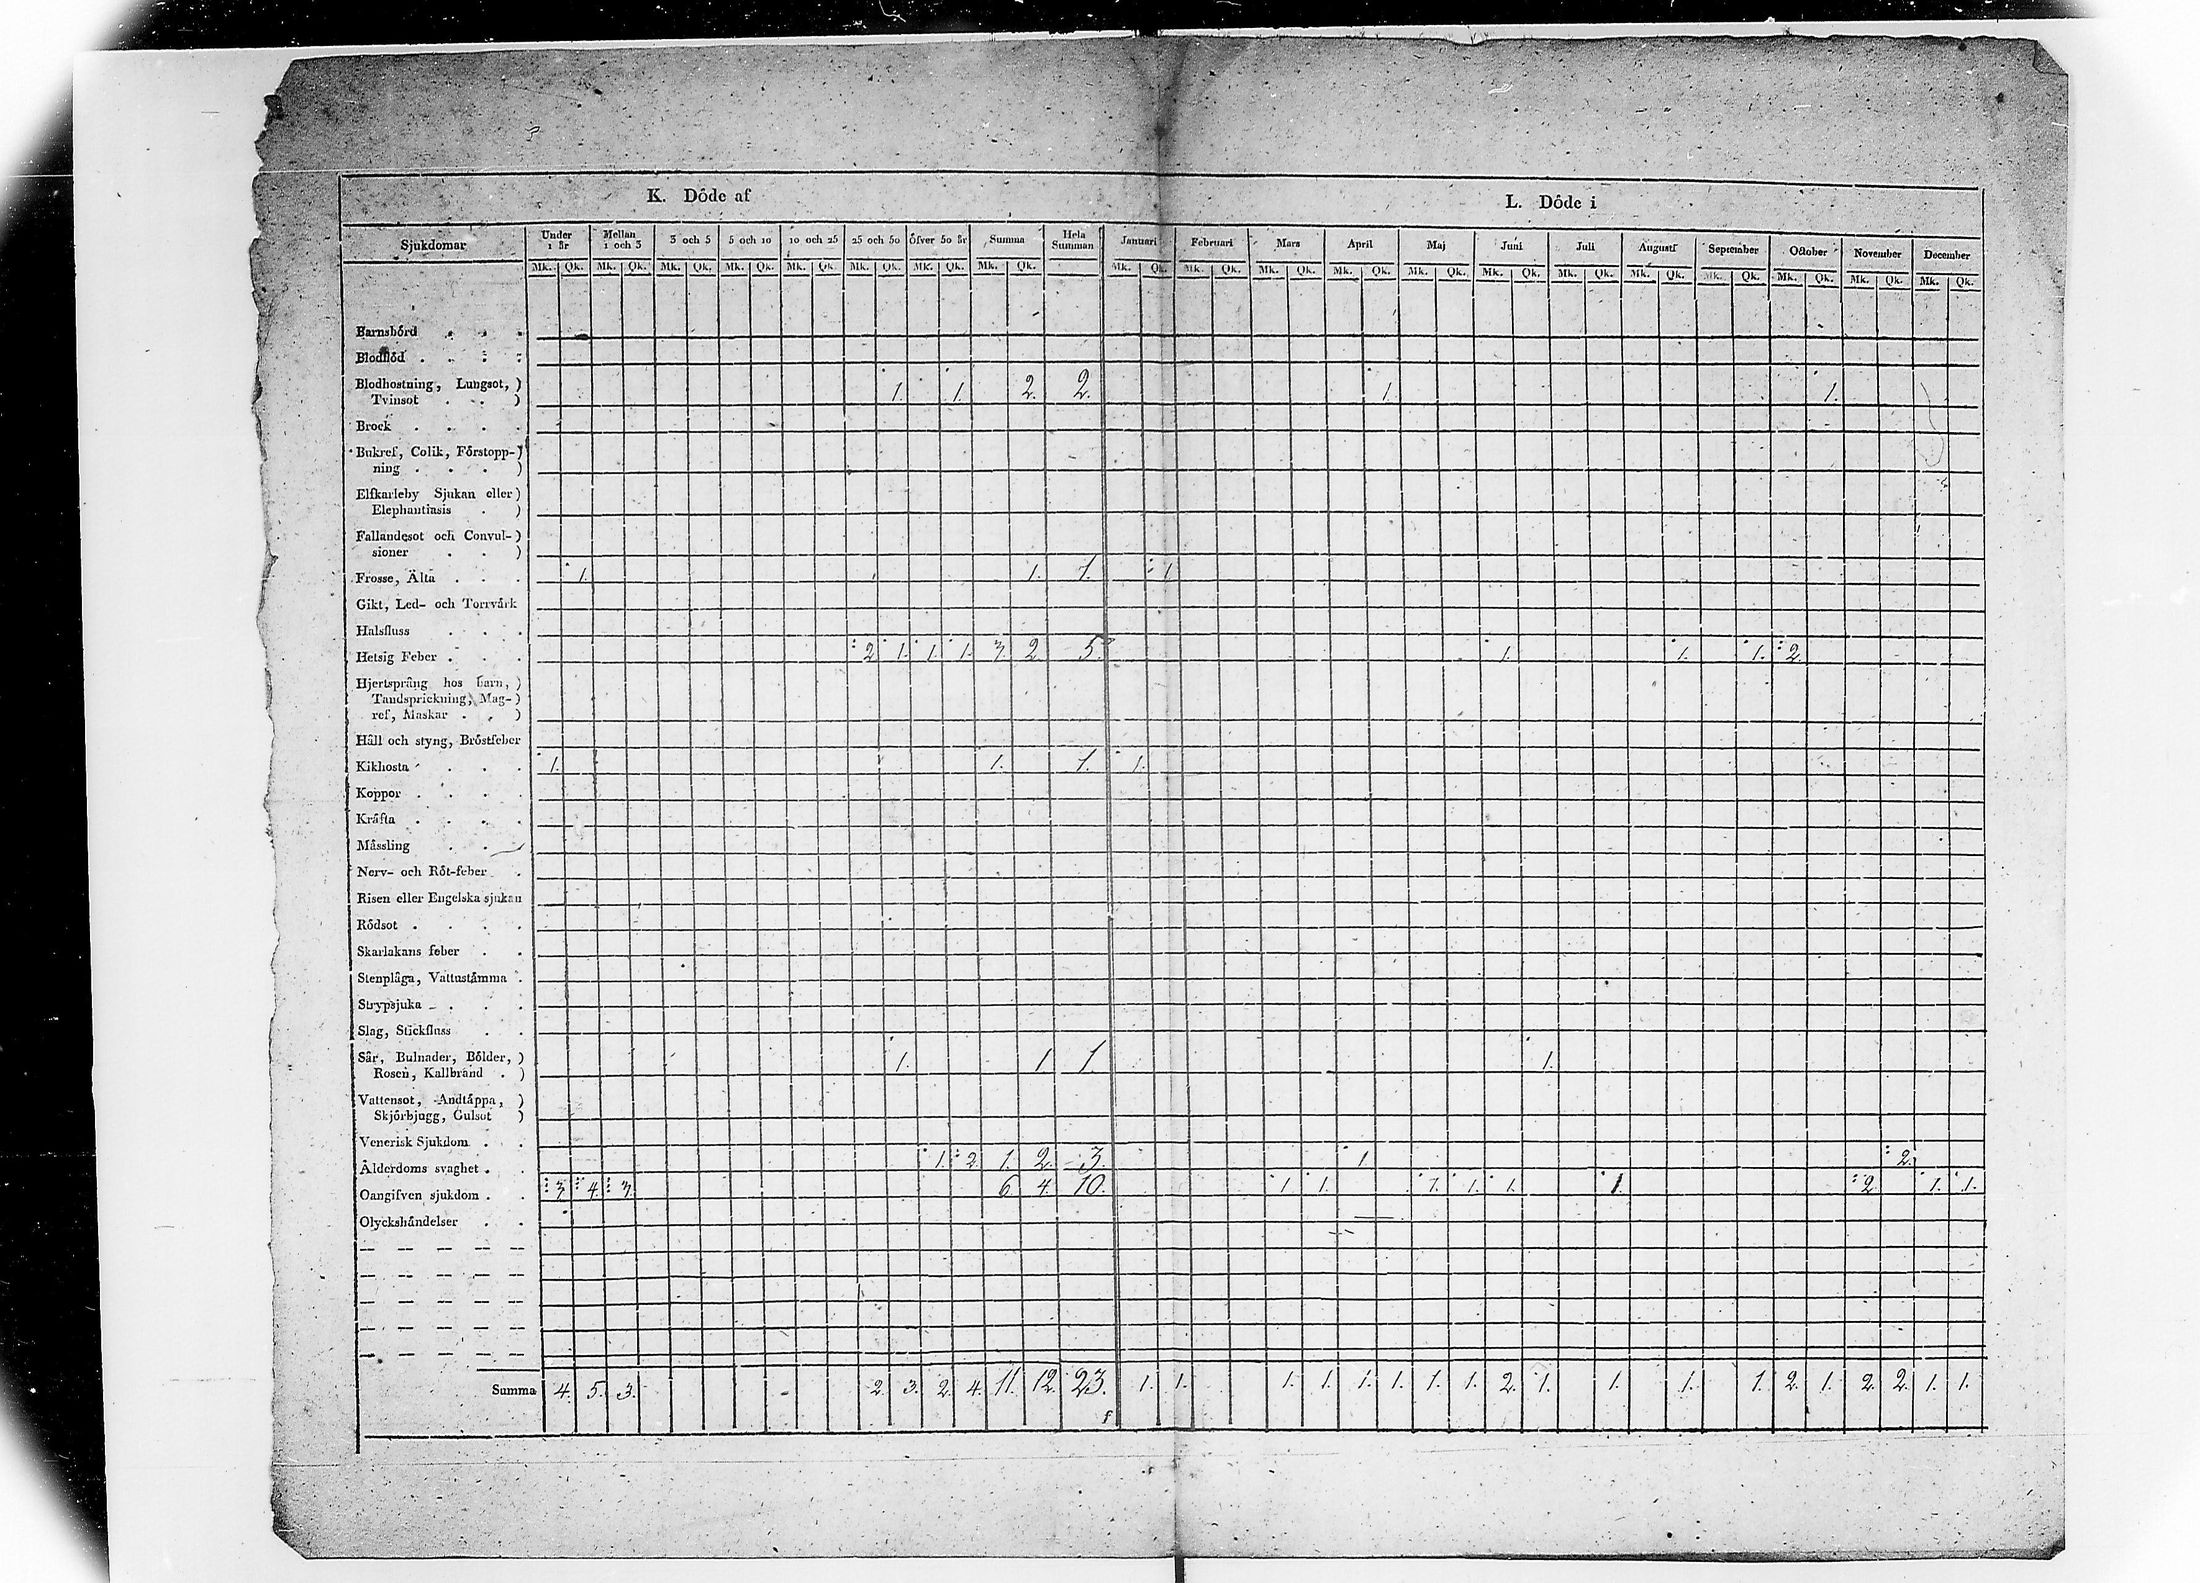 K. Döde af L. Döde i
Sjukdomar Under 1 år Mellan 1 och 3 3 och 5 5 och 10 10 och 25 25 och 50 öfver 50 år Summa Hela Summan Januari Februari Mars April Maj Juni Juli Augusti September October November December
Mk. Qk. Mk. Qk. Mk. Qk. Mk. Qk. Mk. Qk. Mk. Qk. Mk. Qk. Mk. Qk. Mk. Qk. Mk. Qk. Mk. Qk. Mk. Qk. Mk. Qk. Mk. Qk. Mk. Qk. Mk. Qk. Mk. Qk. Mk. Qk. Mk. Qk. Mk. Qk.
Barnsbörd . . .
Blodflöd . . . .
Blodhostning, Lungsot, )
Tvinsot . . ) 1. 1. 2. 2. 1. 1.
Brock . . . .
Bukref, Colik, Förstopp-)
ning . . . )
Elfkarleby Sjukan eller )
Elephantiasis . )
Fallandesot och Convul-)
sioner . . )
Frosse, Älta . . . 1. 1. 1. 1
Gikt, Led- och Torrvärk
Halsfluss . . .
Hetsig Feber . . . 2 1. 1. 1. 3. 2. 5. 1. 1. 1. 2.
Hjertsprång hos barn, )
Tandsprickning, Mag-)
ref, Maskar . . )
Håll och styng, Bröstfeber
Kikhosta . . . 1. 1. 1. 1.
Koppor . . . .
Kräfta . . . .
Mässling . . .
Nerv- och Röt-feber .
Risen eller Engelska sjukan
Rödsot . . . .
Skarlakans feber . .
Stenplåga, Vattustämma .
Strypsjuka . . .
Slag, Stickfluss . .
Sår, Bulnader, Bölder, )
Rosen, Kallbrand . ) 1. 1 1. 1.
Vattensot, Andtäppa, )
Skjörbjugg, Gulsot )
Venerisk Sjukdom . .
Ålderdoms svaghet . . 1. 2 1. 2. 3. 1. 2.
Oangifven sjukdom . . 3. 4. 3. 6 4. 10. 1. 1. 1. 1. 1. 1. 2. 1. 1.
Olyckshändelser . .
Summa 4. 5. 3. 2. 3. 2. 4. 11. 12. 23. 1. 1. 1. 1. 1. 1. 1. 1. 2. 1. 1. 1. 1. 2. 1. 2. 2. 1. 1.